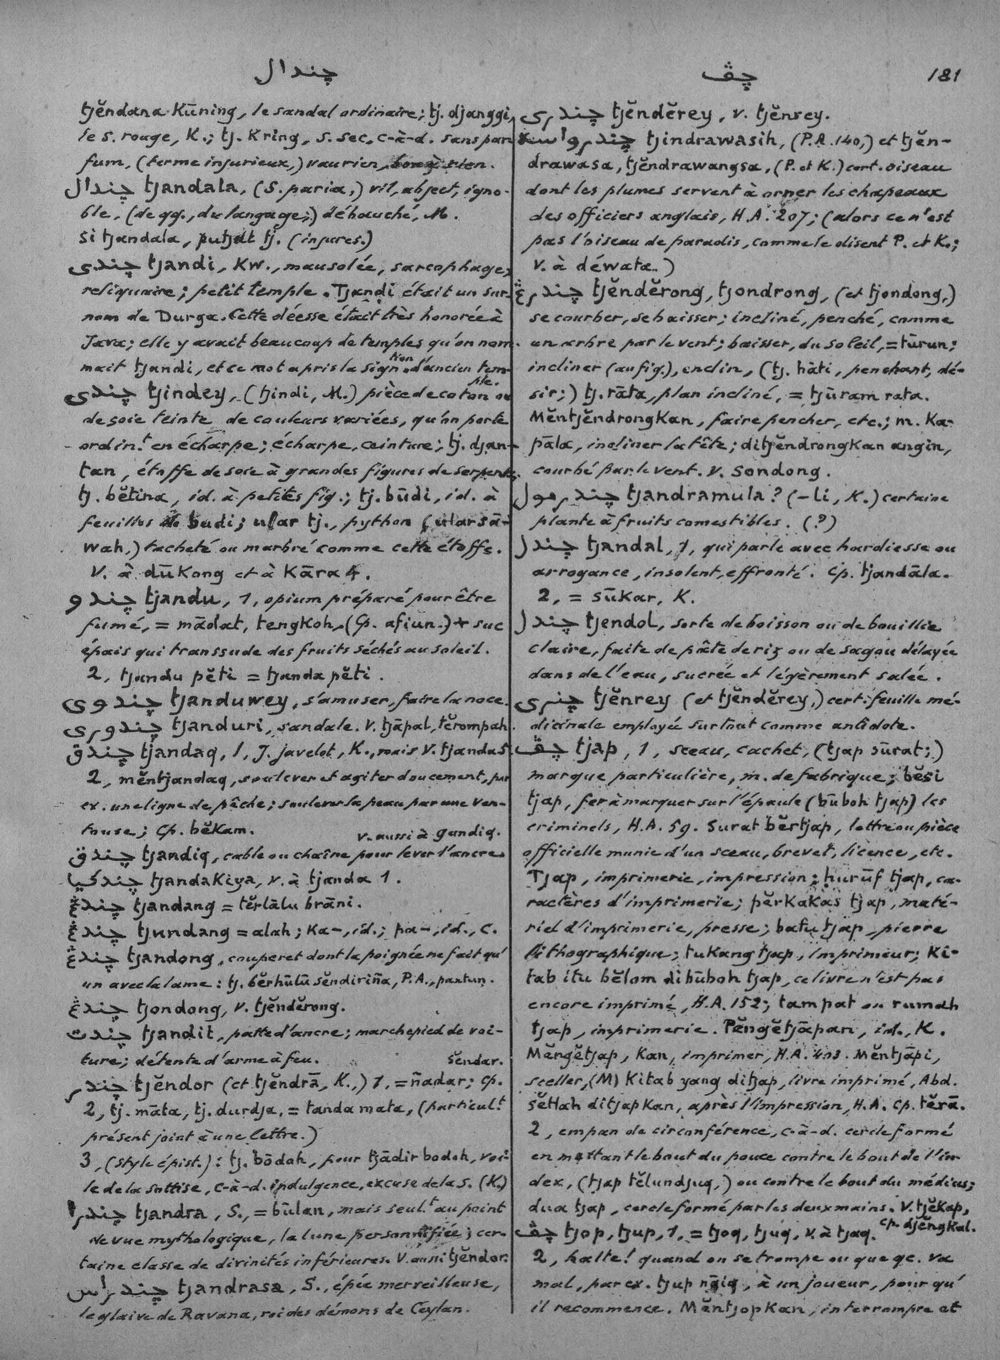 چندال
چڤ
181
tjĕndana Kūning, le sandal ordinaire; tj. djanggi,
le s. rouge, K.; tj. Kring, s. sec, c-à-d. sans par
fum, (terme injurieux,) vaurien, bon à rien.
چندال tjandala, (S. paria,) vil, abject, igno-
ble, (de qq., du langage;) débauché, M.
Si tjandala, putjat tj. (injures.)
چندى tjandi, KW., mausolée, sarcophage,
reliquaire; petit temple. Tjandi était un sur-
nom de Durga. Cette déesse était très honorée à
Java; elle y avait beaucoup de temples qu'on nom-
mait tjandi, et ce mot a pris la sign.on d'ancien tem-
ple.
چندى tjindey, (tjindi, M.) pièce de coton ou
de soie teinte de couleurs variées, qu'on porte
ordin.t en écharpe; écharpe, ceinture; tj. djan-
tan, étoffe de soie à grandes figures de serpents,
tj. bĕtina, id. à petites fig.; tj. būdi, id. à
feuilles de budi; ular tj., python (ular sā-
wah,) tacheté ou marbré comme cette étoffe.
V. à dūkong et à Kāra 4.
چندو tjandu, 1, opium préparé pour être
fumé, = mādat, tengkoh, (Cp. afiun.) + suc
épais qui transsude des fruits séchés au soleil.
2, tjandu pĕti = tjanda pĕti.
چندوى tjanduwey, s'amuser, faire la noce.
چندورى tjanduri, sandale. V. tjāpal, tĕrompah.
چندق tjandaq, 1, J. javelot, K., mais V. tjandas.
2, mĕntjandaq, soulever et agiter doucement, par
ex. une ligne de pêche; soulever la peau par une ven-
touse; Cp. bĕkam.
v. aussi à gandiq.
چندق tjandiq, cable ou chaîne pour lever l'ancre.
چندكيا tjandakiya, v. à tjanda 1.
چندڠ tjandang = tĕrlālu brāni.
چندڠ tjundang = alah; Ka-, id.; pa-, id., C.
چندڠ tjandong, couperet dont la poignée ne fait qu'
un avec la lame: tj. bĕrhūlū sĕndiriña, P.A., pantun.
چندڠ tjondong, v. tjĕndĕrong.
چندت tjandit, patte d'ancre; marchepied de voi-
ture; détente d'arme à feu.
sĕndar.
چندر tjĕndor (et tjĕndrā, K.,) 1, = ñadar; Cp.
2, tj. māta, tj. durdja, = tanda mata, (particul.t
présent joint à une lettre.)
3, (style épist.): tj. bōdoh, pour tjādir bodoh, voi-
le de la sottise, c-à-d. indulgence, excuse de la s. (K.)
چندرا tjandra, S., = būlan, mais seul.t au point
de vue mythologique, la lune personnifiée; cer-
taine classe de divinités inférieures. V. aussi tjĕndor.
چندراس tjandrasa, S., épée merveilleuse,
le glaive de Ravana, roi des démons de Ceylan.
چندرى tjĕndĕrey, v. tjĕnsey.
چندرواسه tjindrawasih, (P.A. 140,) et tjĕn-
drawasa, tjĕndrawangsa, (P. et K.) cert. oiseau
dont les plumes servent à orner les chapeaux
des officiers anglais, H.A. 207; (alors ce n'est
pas l'oiseau de paradis, comme le disent P. et K.;
V. à déwata.)
چندرڠ tjĕndĕrong, tjondrong, (et tjondong,)
se courber, se baisser; incliné, penché, comme
un arbre par le vent; baisser, du soleil, = tūrun;
incliner (au fig.), enclin, (tj. hāti, penchant, dé-
sir;) tj. rāta, plan incliné, = tjūram rata.
Mĕntjĕndrongkan, faire pencher, etc.; m. Ka-
pāla, incliner la tête; ditjĕndrongkan angin,
courbé par le vent. V. Sondong.
چندرمول tjandramula? (-li, K.) certaine
plante à fruits comestibles. (?)
چندل tjandal, 1, qui parle avec hardiesse ou
arrogance, insolent, effronté. Cp. tjandāla.
2, = sūkar, K.
چندل tjendol, sorte de boisson ou de bouillie
claire, faite de pâte de riz ou de sagou délayée
dans de l'eau, sucrée et légèrement salée.
چنرى tjĕnrey (et tjĕndĕrey,) cert. feuille mé-
dicinale employée surtout comme antidote.
چڤ tjap, 1, sceau, cachet, (tjap sūrat;)
marque particulière, m. de fabrique; bĕsi
tjap, fer à marquer sur l'épaule (būboh tjap) les
criminels, H.A. 59. Surat bĕrtjap, lettre ou pièce
officielle munie d'un sceau, brevet, licence, etc.
Tjap, imprimerie, impression; hurūf tjap, ca-
ractères d'imprimerie; pĕrkakas tjap, maté-
riel d'imprimerie, presse; batu tjap, pierre
lithographique; tukang tjap, imprimeur; Ki-
tab itu bĕlom dibūboh tjap, ce livre n'est pas
encore imprimé, H.A. 152; tampat ou rumah
tjap, imprimerie. Pĕngĕtjāpan, id., K.
Mĕngĕtjap, Kan, imprimer, H.A. 403. Mĕntjāpi,
sceller, (M) Kitab yang ditjap, livre imprimé, Abd.
sĕtlah ditjapkan, après l'impression, H.A. Cp. tĕrā.
2, empan de circonférence, c-à-d. cercle formé
en mettant le bout du pouce contre le bout de l'in-
dex, (tjap tĕlundjuq,) ou contre le bout du médius;
dua tjap, cercle formé par les deux mains. V. tjĕkap,
Cp. djĕngkal.
چڤ tjop, tjup, 1, = tjoq, tjuq, v. à tjaq.
2, halte! quand on se trompe ou que qc. va
mal, par ex. tjup ngiq, à un joueur, pour qu'
il recommence. Mĕntjopkan, interrompre et